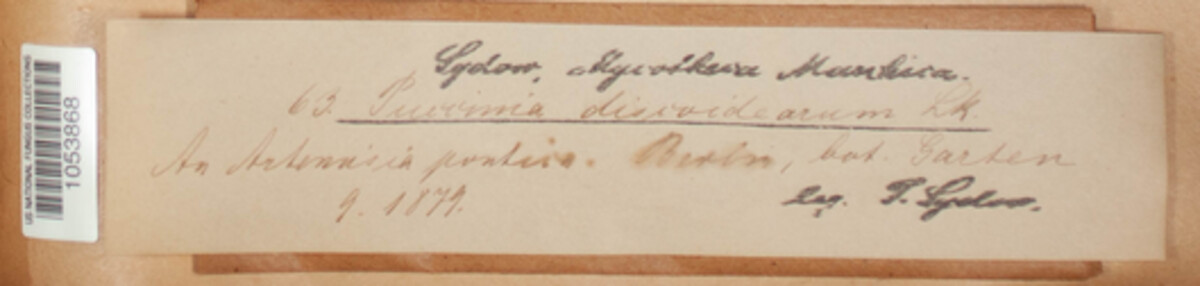 US NATIONAL FUNGUS COLLECTIONS
1053868
Sydow, Mycotheca Marchica.
63. Puccinia discoidearum Lk.
An Artemisia pontica. Berlin, bot. Garten
9. 1879.
Leg. P. Sydow.